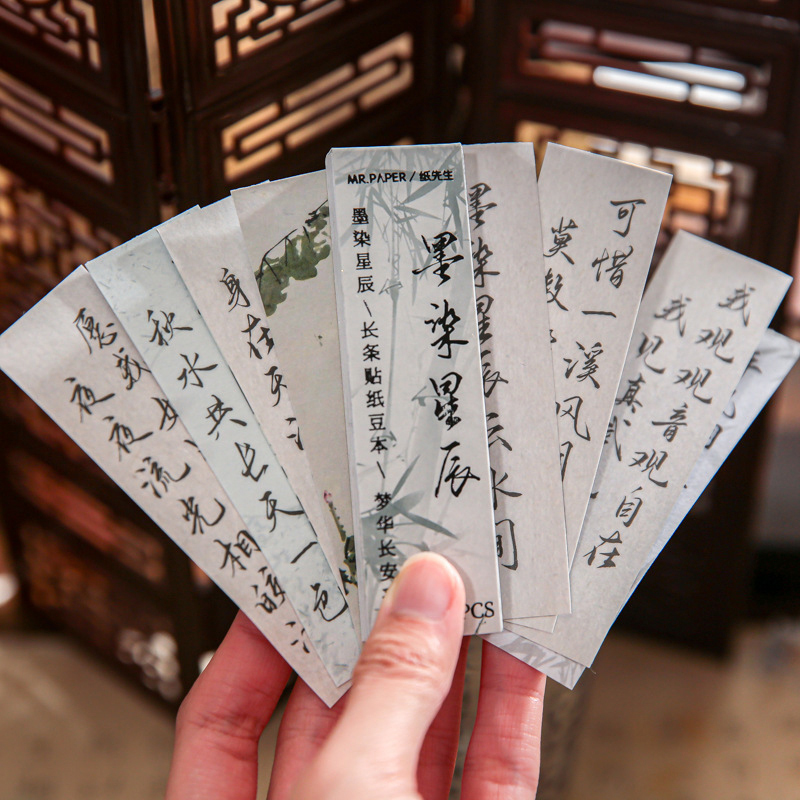 愿我如
夜夜流光相皎
秋水共长天一色
身在
MR.PAPER / 纸先生
墨染星辰\长条贴纸豆本\ 梦华长安
墨染星辰
PCS
墨染星辰云水间
可惜一溪风月
莫
我观观音观自在
我见真武